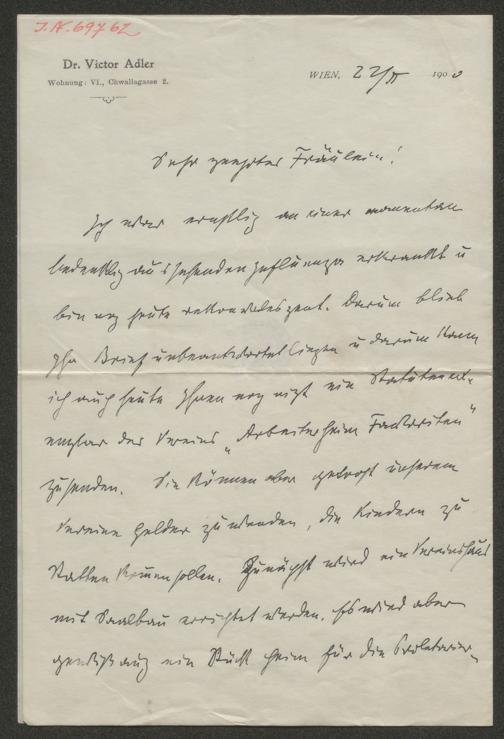 J.N. 69762
Dr. Victor Adler
Wohnung: VI., Chwallagasse 2.
WIEN, 22/II 1900
Sehr geehrtes Fräulein!
Ich war ernstlich an einer momentan
bedenklich aussehenden Influenza erkrankt u
bin noch heute rekonvaleszent. Darum blieb
Ihr Brief unbeantwortet liegen u darum kann
ich auch heute Ihnen noch nicht ein Statutenex-
emplar des Vereins „Arbeiterheim Favoriten"
zusenden. Sie können aber getrost unserem
Vereine Gelder zuwenden, die Kindern zu
Statten kommen sollen. Zunächst wird ein Vereinshaus
mit Saalbau errichtet werden. Es wird aber
gewiß auch ein Stück Heim für die Proletarier-